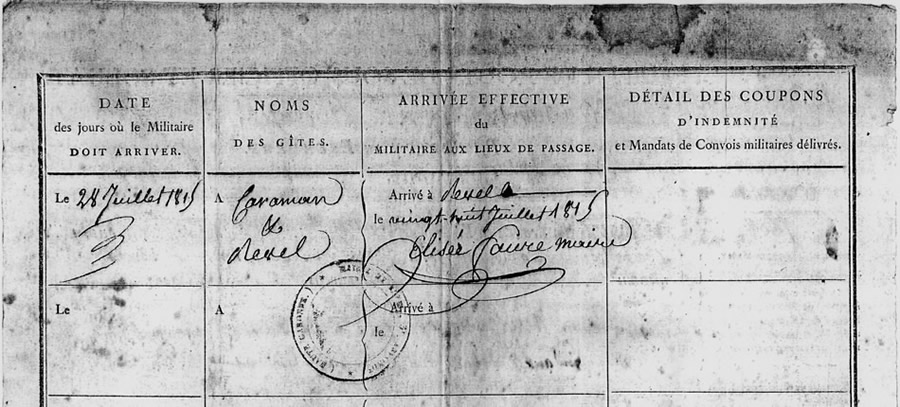 DATE
des jours où le Militaire
DOIT ARRIVER.
NOMS
DES GÎTES.
ARRIVÉE EFFECTIVE
du
MILITAIRE AUX LIEUX DE PASSAGE.
DÉTAIL DES COUPONS
D'INDEMNITÉ
et Mandats de Convois militaires délivrés.
Le 28 Juillet 1815
A Caraman
&
Revel
Arrivé à Revel
le vingt-huit Juillet 1815
Elisée Faure
Le
A
Arrivé à
le
MAIRIE DE
HAUTE GARONNE